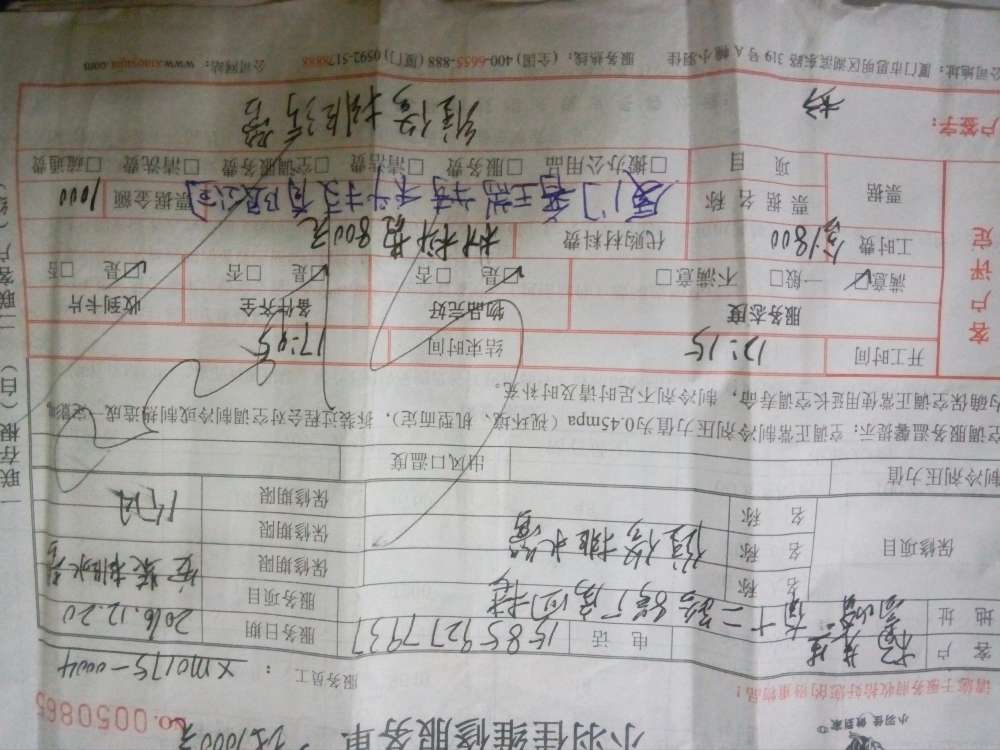 小羽佳 做到家
小羽佳维修服务单
1000元
No.0050865
请您于服务前收拾好您的贵重物品！
服务员工： xm0175-0004
客户 电话 15859277937 服务日期 2016.12.20
地址 服务项目 安装排水管
保修项目 名称 保修期限
名称 维修排水管 保修期限
名称 保修期限
制冷剂压力值 出风口温度
空调服务温馨提示：空调正常制冷剂压力值为0.45mpa（视环境、机型而定），拆装过程会对空调制冷或制热造成一定影响，
为确保空调正常使用延长空调寿命，制冷剂不足时请及时补充。
开工时间 12:15 结束时间 17:05
客户评定
服务态度 物品完好 备件齐全 收到卡片
☑满意 一般□ 不满意□ ☑是 □否 ☑是 □否 ☑是 □否
工时费 1800 代购材料费 材料费800元
票据 票据名称 票据金额 1000
项目 □搬办公用品 □服务费 □清洁费 □空调服务费 □清洗费 □疏通费
客户签字： 杨
公司地址：厦门市思明区湖滨东路319号A幢小羽佳 服务热线：（全国）400-6655-888（厦门）0592-5178888 公司网站：www.xiaoyujia.com
一联存根（白）
二联客户（红）